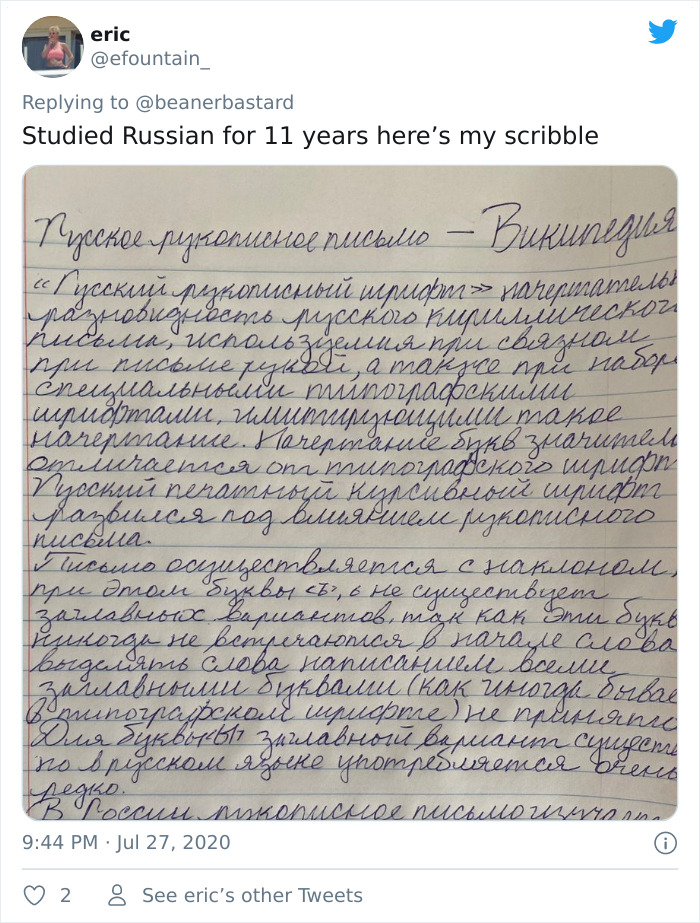 eric
@efountain_
Replying to @beanerbastard
Studied Russian for 11 years here’s my scribble
Русское рукописное письмо — Википедия
«Русский рукописный шрифт» начертательн
разновидность русского кириллическог
письма, используемая при связном
при письме рукой, а также при набор
специальными типографскими
шрифтами, имитирующими такое
начертание. Начертание букв значител
отличается от типографского шрифт
Русский печатный курсивный шрифт
развился под влиянием рукописного
письма.
Письмо осуществляется с наклоном,
при этом буквы <ъ>, ь не существует
заглавных вариантов, так как эти букв
никогда не встречаются в начале слова
выделять слова написанием всеми
заглавными буквами (как иногда бывае
в типографском шрифте) не принято
Для буквы <Ы> заглавный вариант сущест
но в русском языке употребляется очень
редко.
В России рукописное письмо
9:44 PM · Jul 27, 2020
2
See eric’s other Tweets